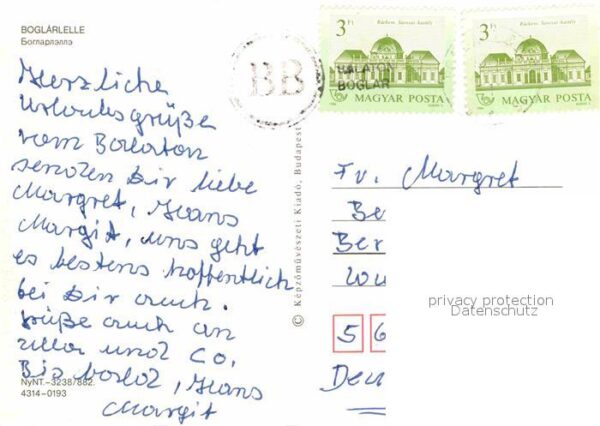 BOGLÁRLELLE
Богларлэллэ
Herzliche
Urlaubsgrüße
vom Balaton
senden Dir liebe
Margret, Hans
Margit, uns geht
es bestens hoffentlich
bei Dir auch.
Grüße auch an
und Co.
Bis bald, Hans
Margit
NyNT.–32387/882.
4314–0193
© Képzőművészeti Kiadó, Budapest
BB
BALATON
BOGLÁR
3 Ft
MAGYAR POSTA
3 Ft
MAGYAR POSTA
Fr. Margret
Be
Ber
Wu
5 6
Deu
privacy protection
Datenschutz